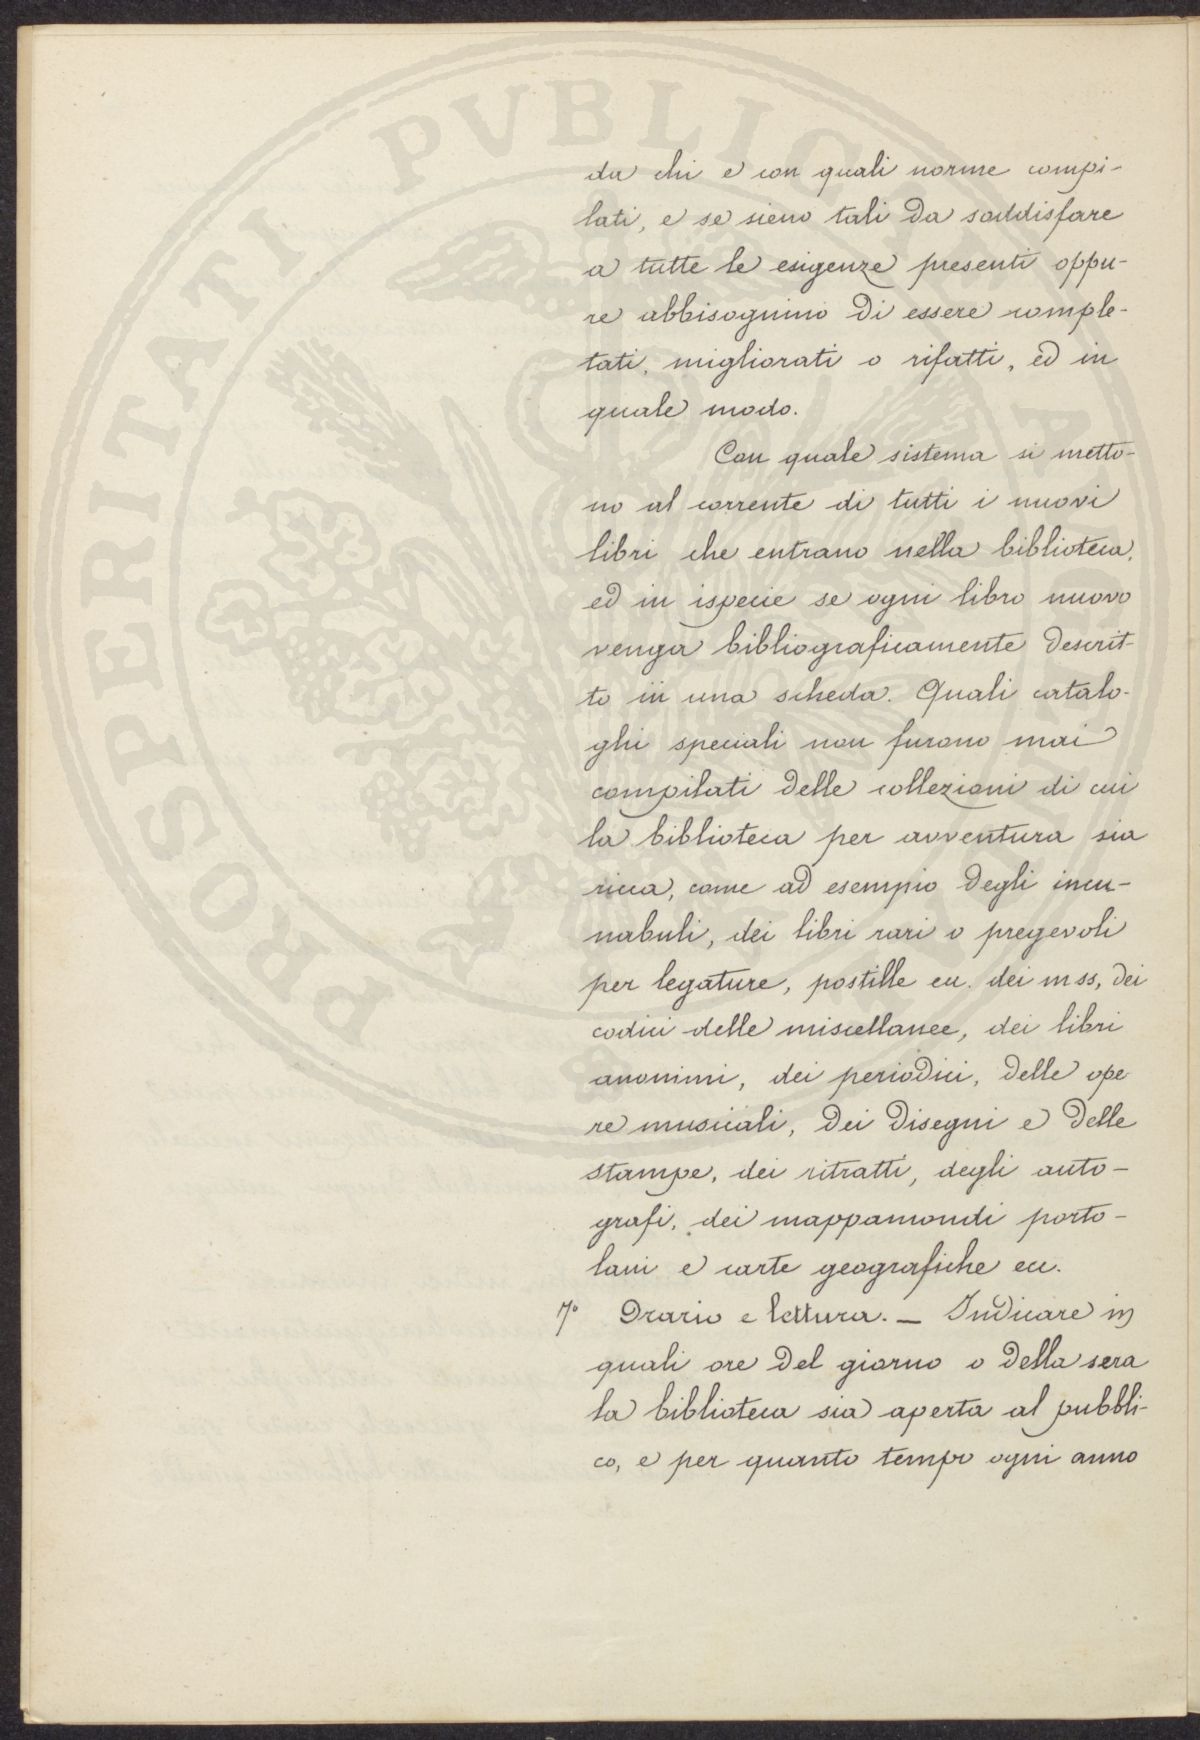 da chi e con quali norme compi-
lati, e se sieno tali da soddisfare
a tutte le esigenze presenti oppu-
re abbisognino di essere comple-
tati, migliorati o rifatti, ed in
quale modo.
Con quale sistema si metto-
no al corrente di tutti i nuovi
libri che entrano nella biblioteca,
ed in ispecie se ogni libro nuovo
venga bibliograficamente descrit-
to in una scheda. Quali catalo-
ghi speciali non furono mai
compilati delle collezioni di cui
la biblioteca per avventura sia
ricca, come ad esempio degli incu-
nabuli, dei libri rari o pregevoli
per legature, postille ecc. dei mss, dei
codici delle miscellanee, dei libri
anonimi, dei periodici, delle ope
re musicali, dei disegni e delle
stampe, dei ritratti, degli auto-
grafi, dei mappamondi porto-
lani e carte geografiche ecc.
7° Orario e lettura. — Indicare in
quali ore del giorno o della sera
la biblioteca sia aperta al pubbli-
co, e per quanto tempo ogni anno
PROSPERITATI PVBLICAE